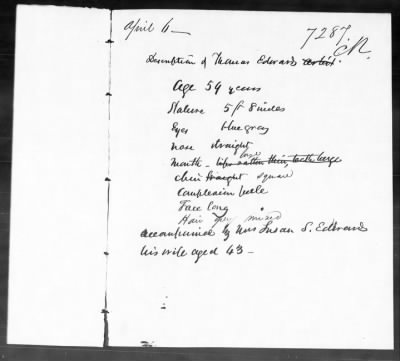 April 6
7287.
Description of Thomas Edwards artist.
Age 59 years
Stature 5 ft 8 inches
Eyes blue gray
nose straight
large
Mouth - lips rather thin, teeth large
chin straight square
Complexion pale
Face long
Hair grey mixed
accompanied by Mrs Susan S. Edwards
his wife aged 43 -